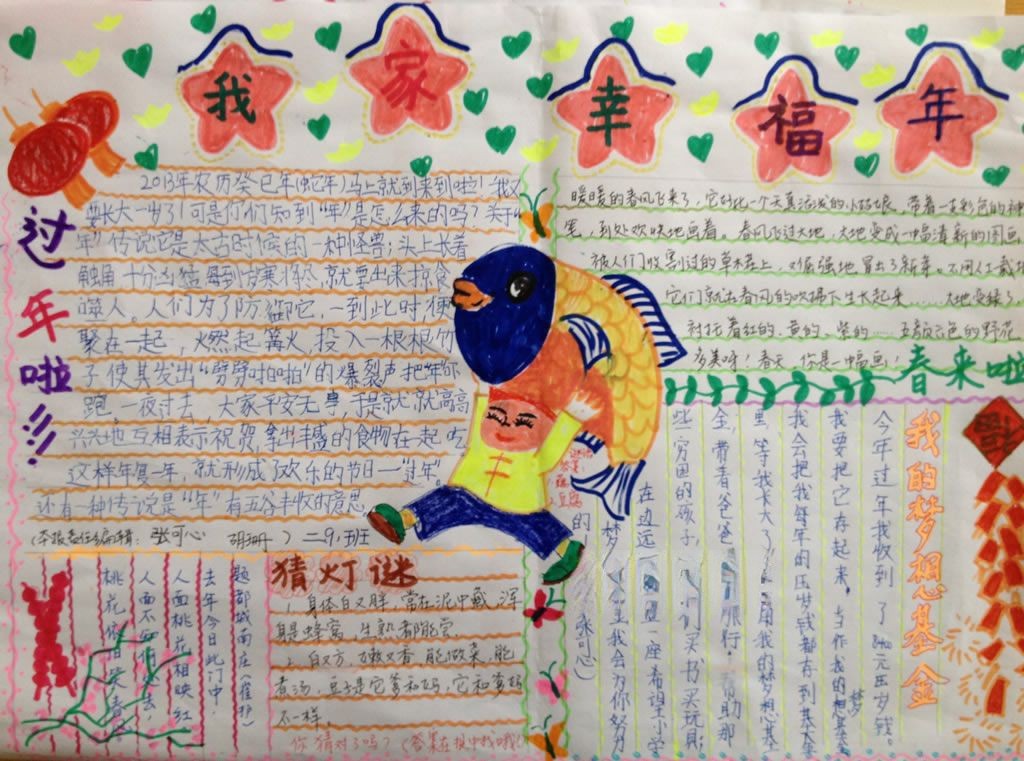 我家幸福年
过年啦!!!
2013年农历癸巳年(蛇年)马上就到来到啦!我又
要长大一岁了!可是你们知道“年”是怎么来的吗?关于“
年”传说它是太古时候的一种怪兽;头上长着
触角十分凶猛每到岁寒将尽,就要出来掠食
噬人。人们为了防御它,一到此时便
聚在一起,燃起篝火,投入一根根竹
子使其发出“劈劈啪啪”的爆裂声把年吓
跑一夜过去,大家平安无事,于是就就高高
兴兴地互相表示祝贺,拿出丰盛的食物在一起吃
这样年复一年,就形成了欢乐的节日—“过年”。
还有一种传说是“年”有五谷丰收的意思
张可心
二9,班
题都城南庄(崔护)
去年今日此门中,
人面桃花相映红
人面不
桃花依旧笑春
猜灯谜
1.身体白又胖,常在泥中藏,浑
身是蜂窝,生熟都能尝
2.白又方,嫩又香,能做菜,能
煮汤,豆子是它爹和妈,它和爹妈
不一样。
你猜对了吗?(答案在报中找哦!)
暖暖的春风飞来了,它好比一个天真活泼的小姑娘,带着一支彩色的神
笔,到处欢快地画着。春风飞过大地,大地变成一幅清新的图画
被人们收割过的草木茬上,又倔强地冒出了新芽。不用人工栽培
它们就在春风的吹拂下生长起来……大地变绿了,
衬托着红的、黄的、紫的……五颜六色的野花
多美呀!春天,你是一幅画!
春来啦
我的梦想基金
今年过年我收到了
元压岁钱。
我要把它存起来。当作我的梦想基
我会把我每年的压岁钱都存到基金
里,等我长大了,用我的梦想基
金,带着爸爸
旅行,帮助那
些穷困的孩子,
们买书买玩具;
在边远
一座希望小学
的梦
我会为你努力
(张可心)
福